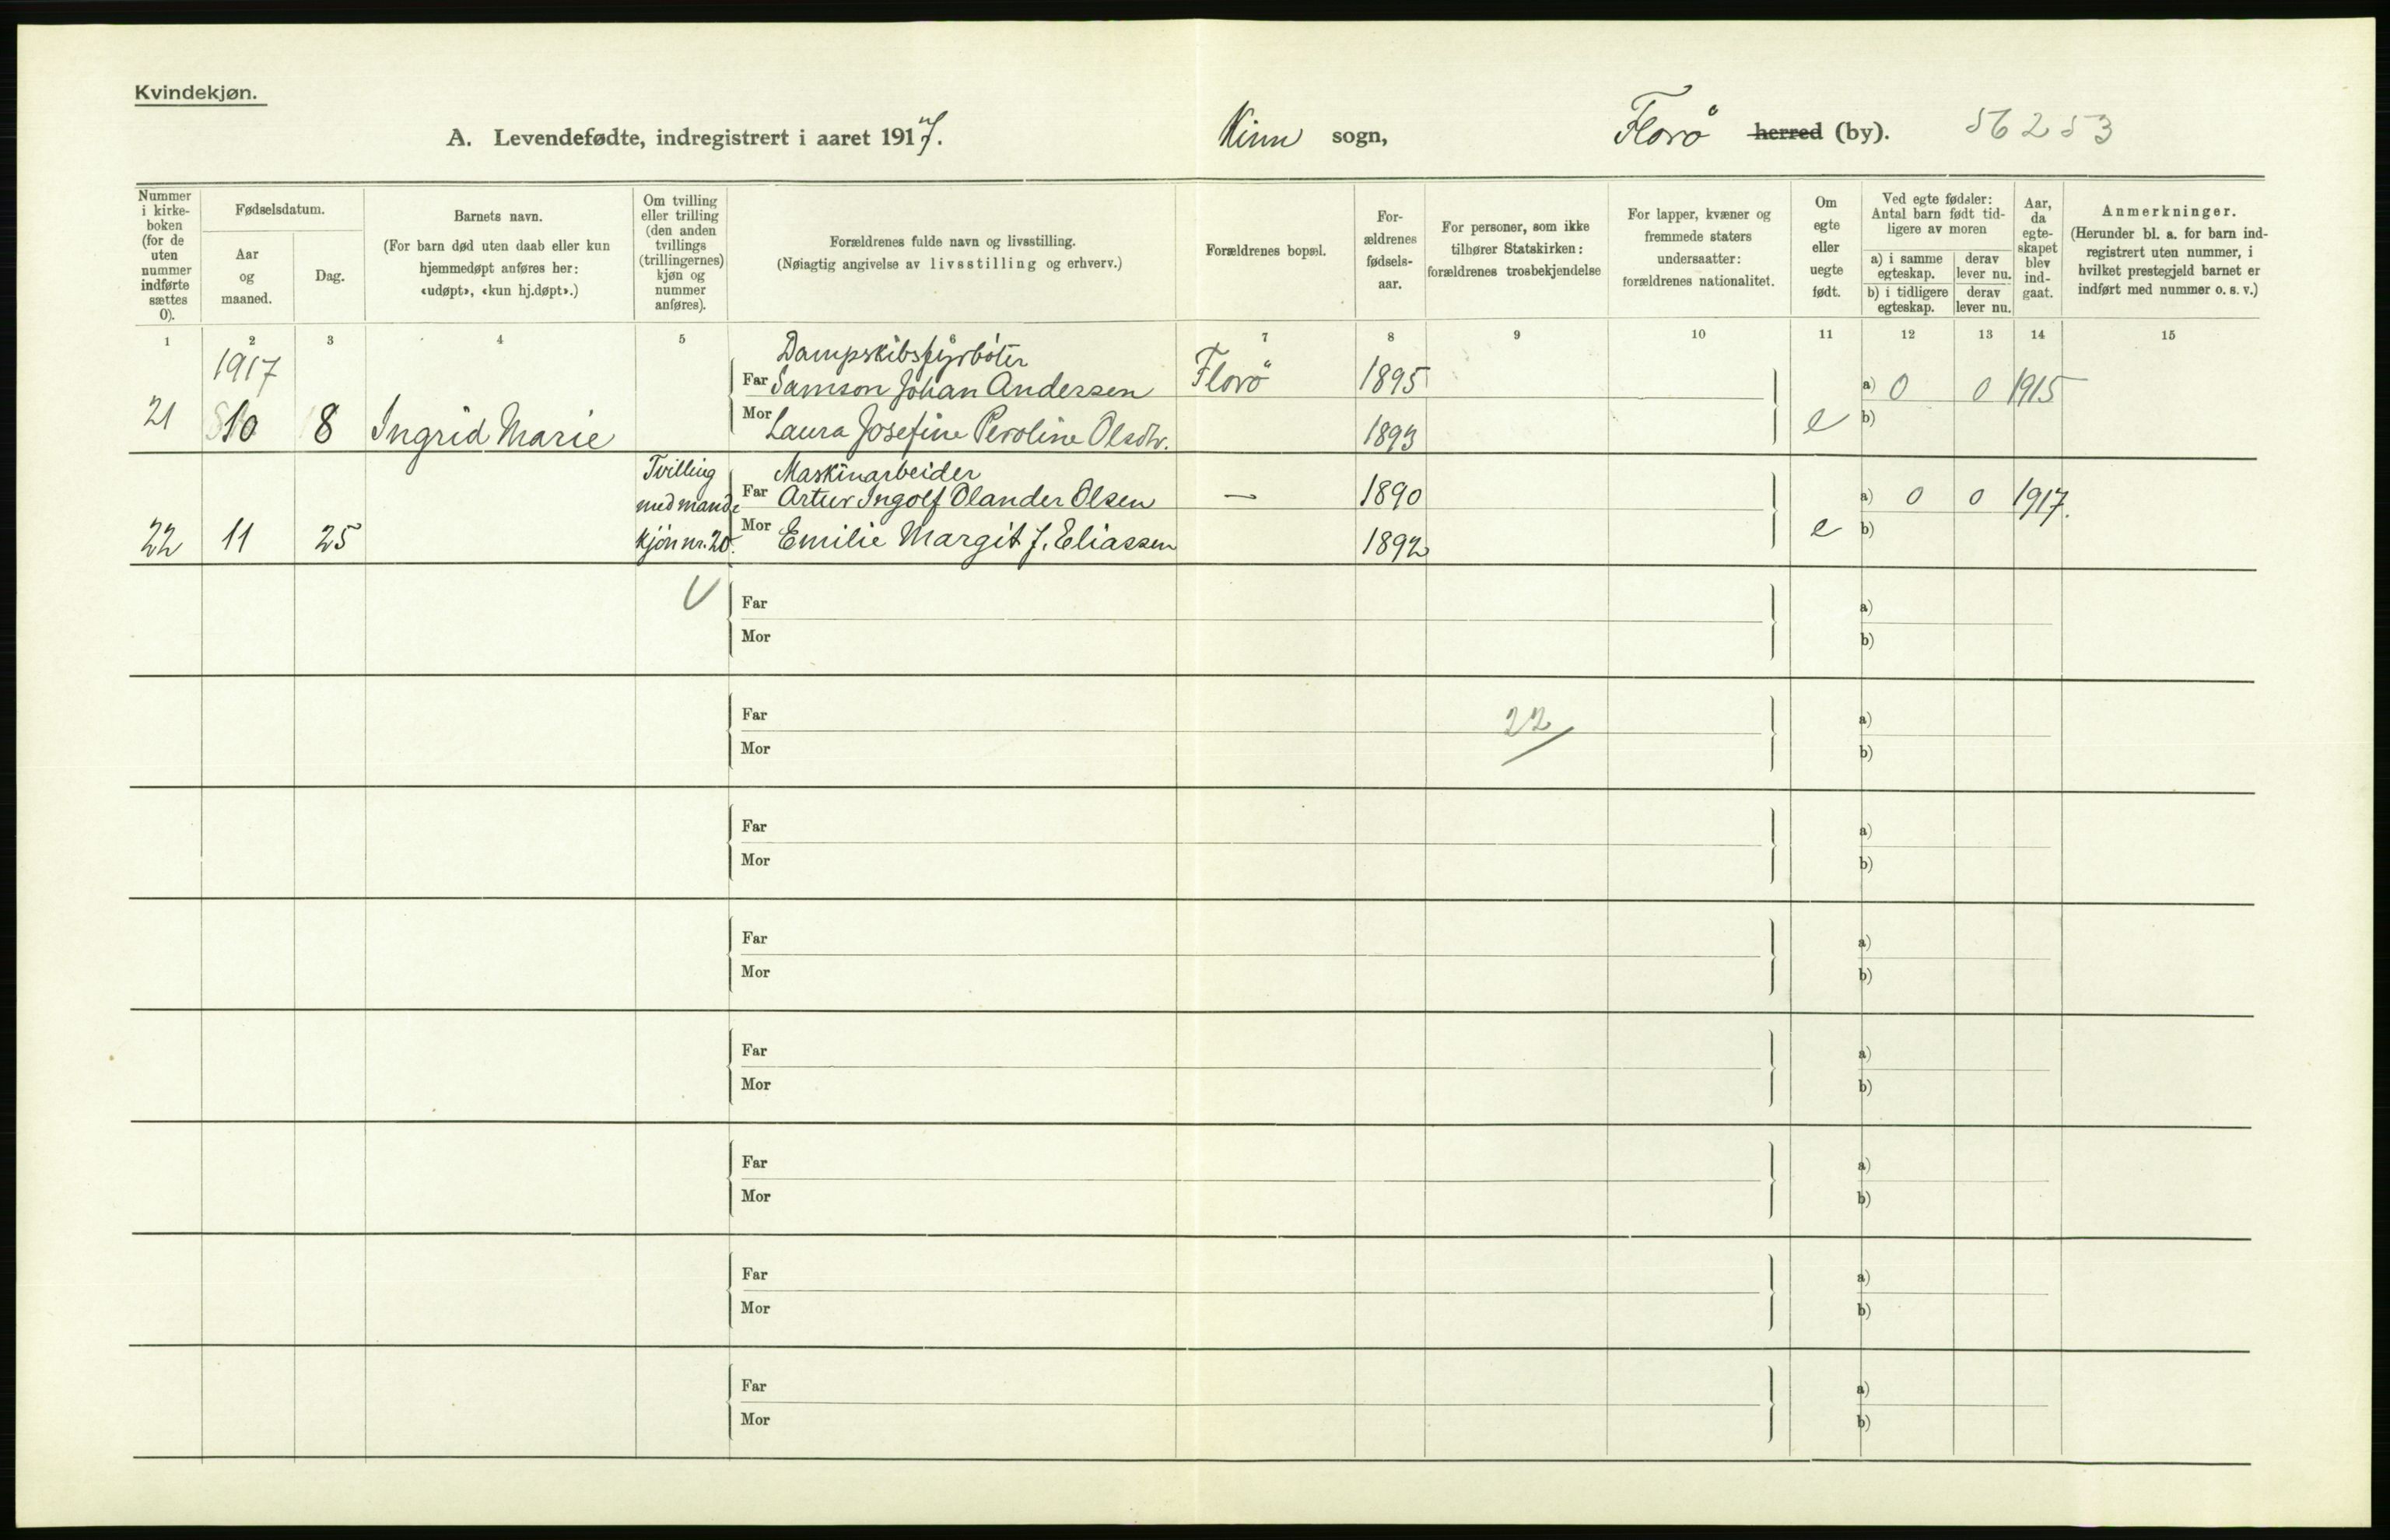 Kvindekjøn.
A. Levendefødte, indregistrert i aaret 1917.
Kinn sogn,
Florø herred (by).
56253
Nummer i kirke-boken (for de uten nummer indførte sættes 0).
Fødselsdatum.
Aar og maaned.
Dag.
Barnets navn.
(For barn død uten daab eller kun hjemmedøpt anføres her: «udøpt», «kun hj.døpt».)
Om tvilling eller trilling (den anden tvillings (trillingernes) kjøn og nummer anføres).
Forældrenes fulde navn og livsstilling.
(Nøiagtig angivelse av livsstilling og erhverv.)
Forældrenes bopæl.
For-ældrenes fødsels-aar.
For personer, som ikke tilhører Statskirken: forældrenes trosbekjendelse
For lapper, kvæner og fremmede staters undersaatter: forældrenes nationalitet.
Om egte eller uegte født.
Ved egte fødsler: Antal barn født tid-ligere av moren
a) i samme egteskap.
derav lever nu.
b) i tidligere egteskap.
derav lever nu.
Aar, da egte-skapet blev ind-gaat.
Anmerkninger.
(Herunder bl. a. for barn ind-registrert uten nummer, i hvilket prestegjeld barnet er indført med nummer o. s. v.)
1 2 3 4 5 6 7 8 9 10 11 12 13 14 15
1917
Dampskibsfyrbøter
Far Samson Johan Andersen Florø 1895 a) 0 0 1915
21 10 8 Ingrid Marie Mor Laura Josefine Peroline Olsdtr. 1893 e b)
Tvilling Maskinarbeider
med mand- Far Artur Ingolf Olander Olsen — 1890 a) 0 0 1917.
22 11 25 kjøn nr. 20. Mor Emilie Margit J. Eliassen 1892 e b)
Far a)
Mor b)
Far 22 a)
Mor b)
Far a)
Mor b)
Far a)
Mor b)
Far a)
Mor b)
Far a)
Mor b)
Far a)
Mor b)
Far a)
Mor b)